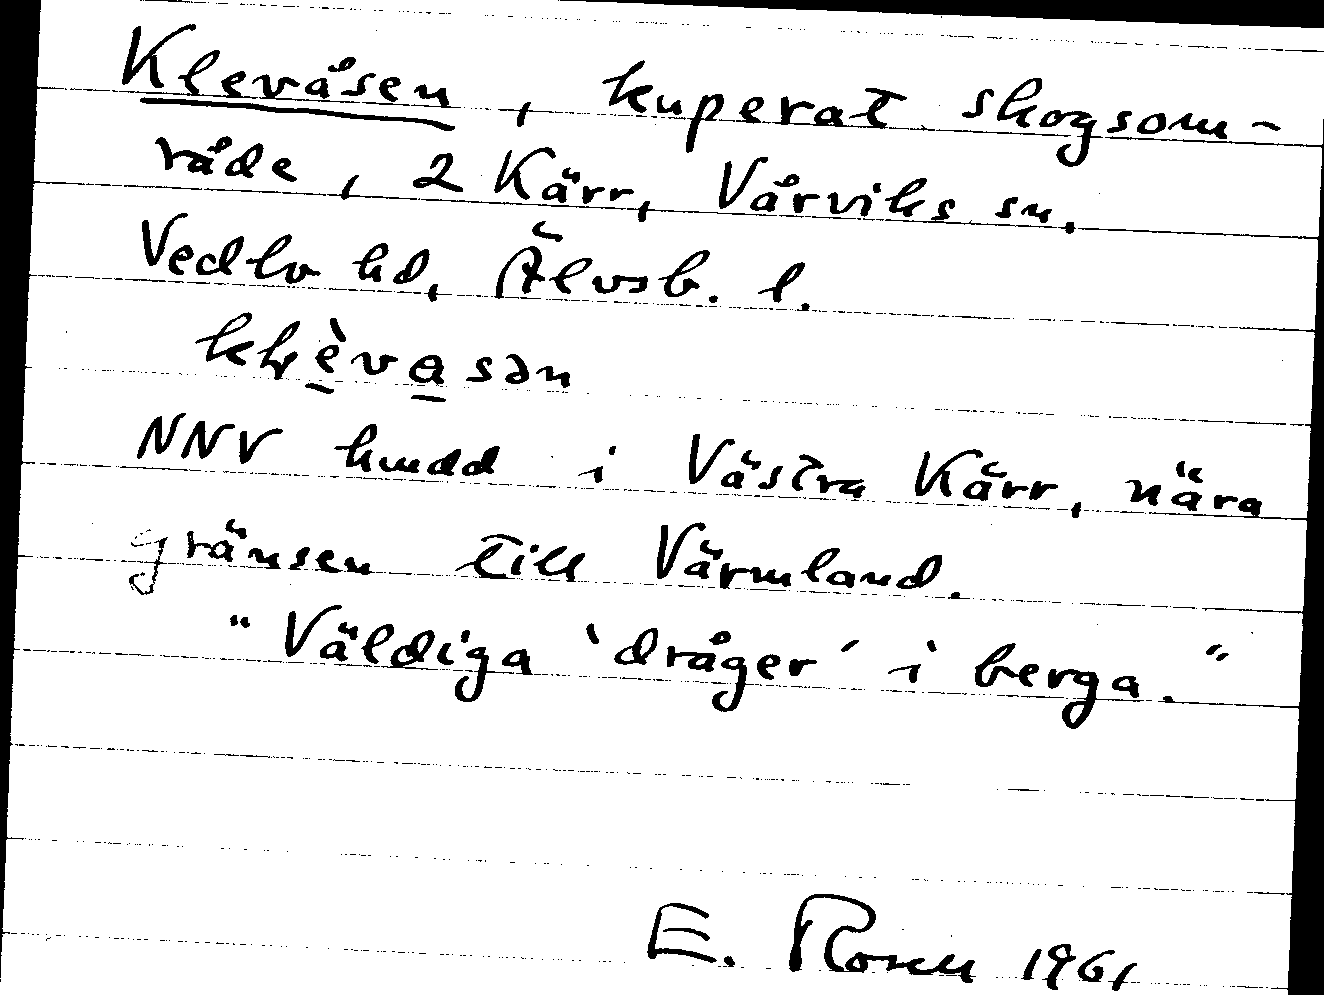 Klevåsen, kuperat skogsom-
råde, 2 Kärr, Vårviks sn.
Vedbo hd, Älvsb. l.
NNV hmdd i Västra Kärr, nära
gränsen till Värmland.
"Väldiga 'dråger' i berga."
E. Rosen 1961